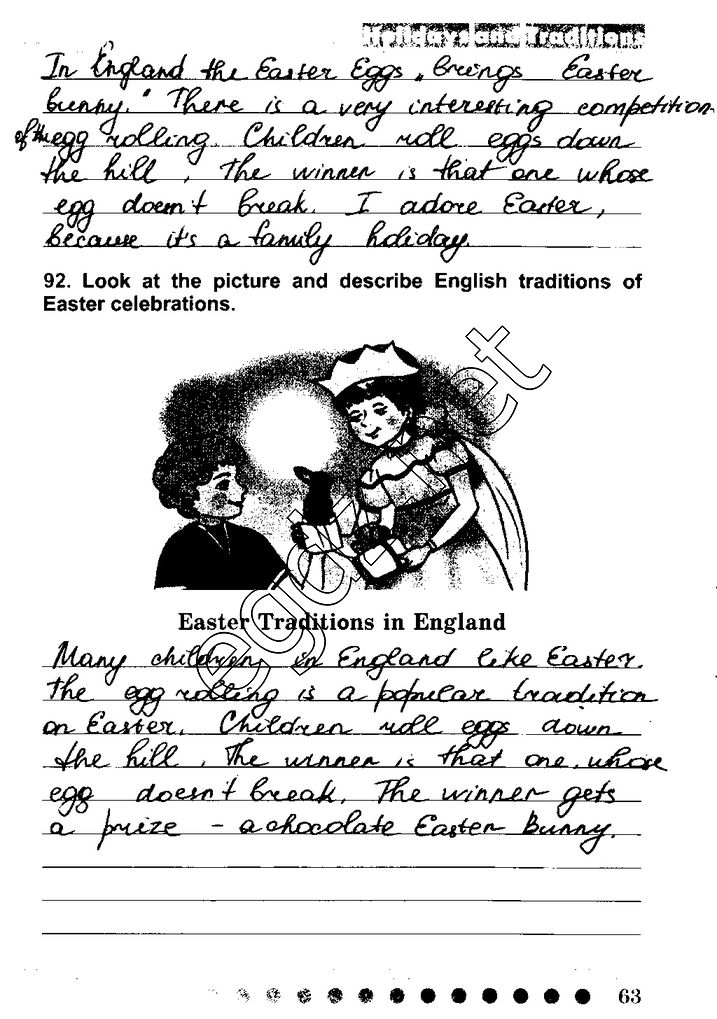 Holidays and Traditions
In England the Easter Eggs „brings Easter
bunny." There is a very interesting competition
of the egg rolling. Children roll eggs down
the hill. The winner is that one whose
egg doesn't break. I adore Easter,
because it's a family holiday.
92. Look at the picture and describe English traditions of
Easter celebrations.
Easter Traditions in England
Many children in England like Easter.
The egg rolling is a popular tradition
on Easter. Children roll eggs down
the hill. The winner is that one, whose
egg doesn't break. The winner gets
a prize – a chocolate Easter Bunny.
63